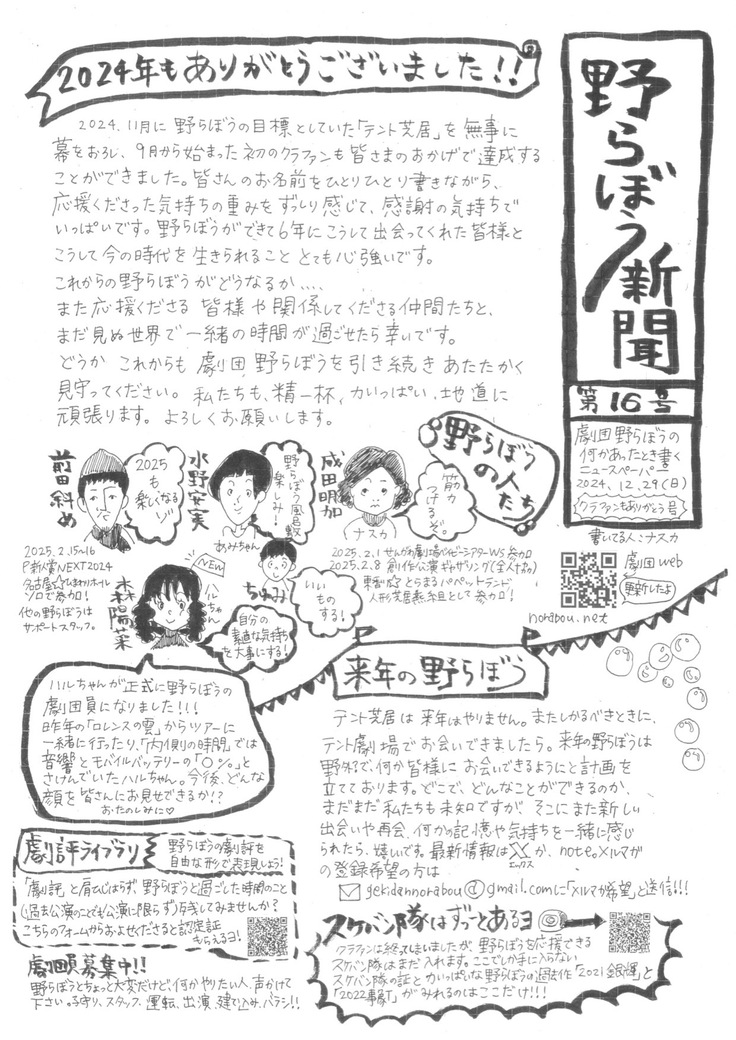 野らぼう新聞
第16号
劇団野らぼうの
何かあったとき書く
ニュースペーパー
2024.12.29(日)
クラファンもありがとう号
書いてる人:ナスカ
劇団web
更新したよ
norabou.net
2024年もありがとうございました!!
2024.11月に野らぼうの目標としていた「テント芝居」を無事に
幕をおろし、9月から始まった初のクラファンも皆さまのおかげで達成する
ことができました。皆さんのお名前をひとりひとり書きながら、
応援くださった気持ちの重みをずっしり感じて、感謝の気持ちで
いっぱいです。野らぼうができて6年にこうして出会ってくれた皆様と
こうして今の時代を生きられることとても心強いです。
これからの野らぼうがどうなるか....
また応援くださる皆様や関係してくださる仲間たちと、
まだ見ぬ世界で一緒の時間が過ごせたら幸いです。
どうかこれからも劇団野らぼうを引き続きあたたかく
見守ってください。私たちも、精一杯、力いっぱい、地道に
頑張ります。よろしくお願いします。
野らぼうの人たち
成田明加
筋力つけるぞ。
ナスカ
2025.2.1 せんがわ劇場ベイビーシアターWS参加
2025.2.8 創作公演ギャザリング(全人協力)
とらまるパペットランド
水野安実
野らぼう風呂敷楽しみ!
あみちゃん
前田斜め
2025も楽しくなるゾ
2025.2.15~16
P新人賞NEXT2024
名古屋ひまわりホール
ソロで参加!
他の野らぼうは
サポートスタッフ。
ちゅみ
いいものする!
森陽菜
NEW
ハルちゃん
自分の素直な気持ちを大事にする!
ハルちゃんが正式に野らぼうの
劇団員になりました!!!
昨年の「ロレンスの雲」からツアーに
一緒に行ったり、「内側の時間」では
音響とモバイルバッテリーの「〇%」と
さけんでいたハルちゃん。今後、どんな
顔を皆さんにお見せできるか!?
おたのしみに♡
来年の野らぼう
テント芝居は来年はやりません。またしかるべきときに、
テント劇場でお会いできましたら。来年の野らぼうは
野外で、何か皆様にお会いできるようにと計画を
立てております。どこで、どんなことができるのか、
まだまだ私たちも未知ですが、そこにまた新しい
出会いや再会、何かの記憶や気持ちを一緒に感じ
られたら、嬉しいです。最新情報はXか、note。メルマガ
エックス
の登録希望の方は
gekidannorabou@gmail.comに「メルマガ希望」と送信!!!
劇評ライブラリ
野らぼうの劇評を
自由な形で表現しよう!
「劇評」と肩ひじはらず野らぼうと過ごした時間のこと
(過去公演のことでも公演に限らず)残してみませんか?
こちらのフォームからおよせくださると認定証
もらえるヨ!
劇団員募集中!!
野らぼうとちょっと大変だけど、何かやりたい人、声かけて
下さい。子守り、スタッフ、運転、出演、建て込み、バラシ!!
スケバン隊はずーっとあるヨ
クラファンは終ってしまいましたが、野らぼうを応援できる
スケバン隊はまだ入れます。ここでしか手に入らない
スケバン隊の証と力いっぱいな野らぼうの過去作「2021銀河」と
がみれるのはここだけ!!!